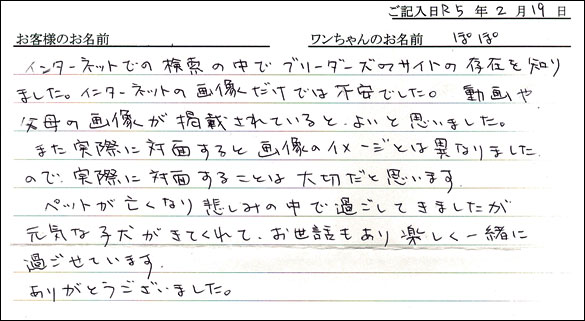 ご記入日R5 年 2 月 19 日
お客様のお名前 ワンちゃんのお名前 ぽぽ
インターネットでの検索の中でブリーダーズのサイトの存在を知り
ました。インターネットの画像だけでは不安でした。 動画や
父母の画像が掲載されていると、よいと思いました。
また実際に対面すると画像のイメージとは異なりました
ので、実際に対面することは大切だと思います。
ペットが亡くなり悲しみの中で過ごしてきましたが
元気な子犬がきてくれて、お世話もあり楽しく一緒に
過ごせています。
ありがとうございました。